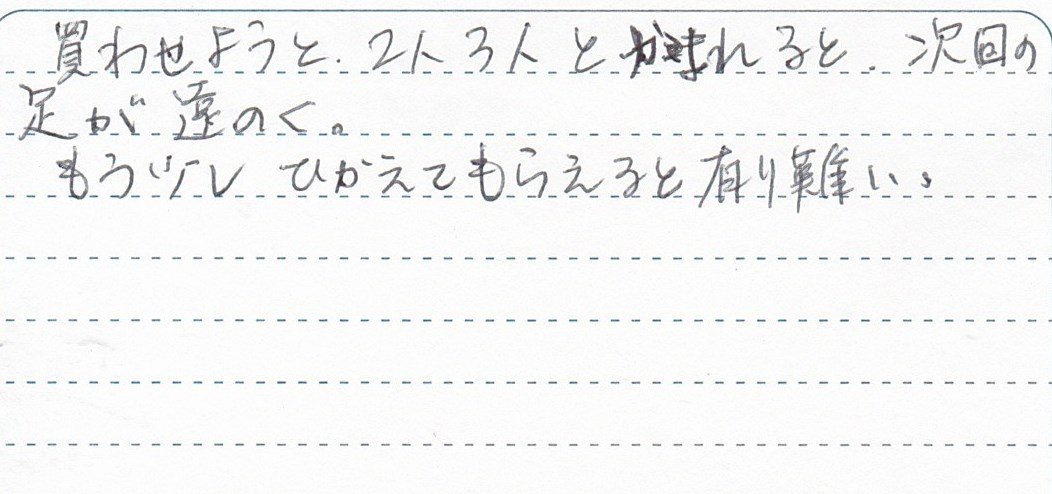 買わせようと、2人3人と　れると、次回の
足が遠のく。
もう少しひかえてもらえると有り難い。